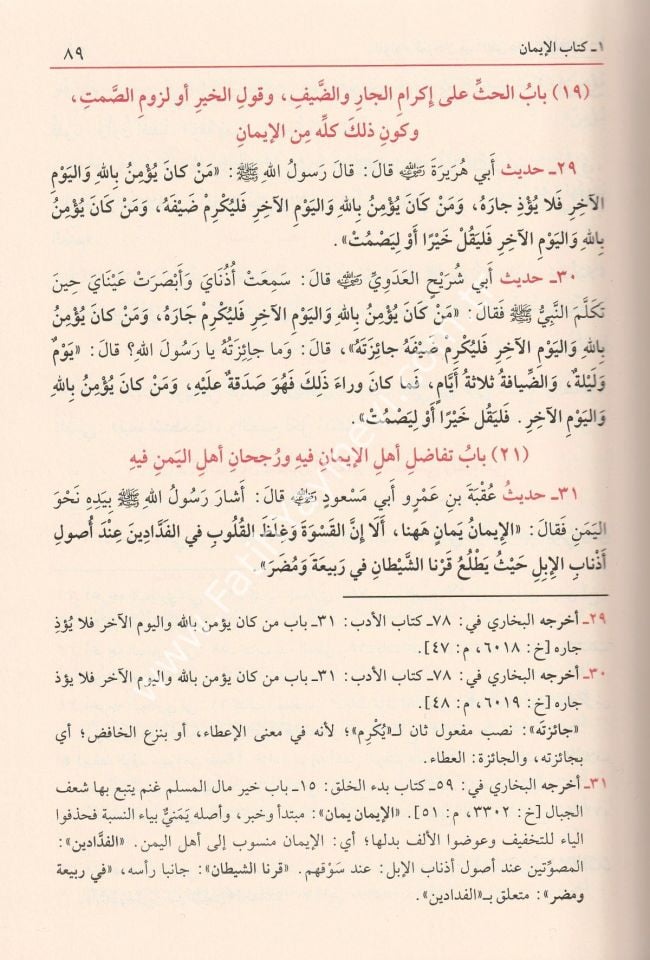 ١ـ كتاب الإيمان ٨٩
(١٩) بابُ الحثِّ على إكرامِ الجارِ والضَّيفِ، وقولِ الخيرِ أو لزومِ الصَّمتِ،
وكونِ ذلكَ كلِّه مِن الإيمانِ
٢٩ـ حديث أَبي هُرَيرَةَ رضي الله عنه قالَ: قالَ رَسولُ اللهِ ﷺ: «مَنْ كانَ يُؤْمِنُ بِاللهِ وَاليَوْمِ
الآخِرِ فَلا يُؤْذِ جارَهُ، وَمَنْ كانَ يُؤْمِنُ بِاللهِ وَاليَومِ الآخِرِ فَليُكْرِمْ ضَيْفَهُ، وَمَنْ كانَ يُؤْمِنُ
بِاللهِ وَاليَومِ الآخِرِ فَليَقُلْ خَيْرًا أَوْ لِيَصْمُتْ».
٣٠ـ حديث أَبي شُرَيْحٍ العَدَوِيِّ رضي الله عنه قالَ: سَمِعَتْ أُذُنَايَ وَأَبْصَرَتْ عَيْنَايَ حِينَ
تَكَلَّمَ النَّبِيُّ ﷺ فَقالَ: «مَن كانَ يُؤْمِنُ بِاللهِ وَاليَومِ الآخِرِ فَليُكْرِمْ جَارَهُ، وَمَن كانَ يُؤْمِنُ
بِاللهِ وَاليَومِ الآخِرِ فَليُكْرِمْ ضَيْفَهُ جائِزَتَهُ»، قالَ: وَما جائِزَتُهُ يا رَسُولَ اللهِ؟ قالَ: «يَوْمٌ
وَلَيْلَةٌ، وَالضِّيافةُ ثلاثةُ أيَّامٍ، فَما كانَ وراءَ ذَلِكَ فَهُوَ صَدَقةٌ علَيْهِ، وَمَنْ كَانَ يُؤْمِنُ بِاللهِ
وَاليَومِ الآخِرِ . فَليَقُل خَيْرًا أَوْ لِيَصْمُتْ».
(٢١) بابُ تفاضلِ أهلِ الإيمانِ فيهِ ورُجحانِ أهلِ اليَمنِ فيهِ
٣١ـ حديثُ عُقْبَةَ بنِ عَمْرٍو أَبي مَسْعودٍ رضي الله عنه قالَ: أَشارَ رَسُولُ اللهِ ﷺ بِيَدِهِ نَحْوَ
اليَمَنِ فَقالَ: «الإيمَانُ يَمانٍ هَهنا، أَلا إِنَّ القَسْوَةَ وَغِلَظَ القُلُوبِ في الفَدَّادِينَ عِنْدَ أُصولِ
أَذْنابِ الإبِلِ حَيْثُ يَطْلُعُ قَرْنا الشَّيْطانِ في رَبيعَةَ وَمُضَرَ».
٢٩ـ أخرجه البخاري في: ٧٨ـ كتاب الأدب: ٣١ـ باب من كان يؤمن بالله واليوم الآخر فلا يؤذِ
جاره [خ: ٦٠١٨، م: ٤٧].
٣٠ـ أخرجه البخاري في: ٧٨ـ كتاب الأدب: ٣١ـ باب من كان يؤمن بالله واليوم الآخر فلا يؤذ
جاره [خ: ٦٠١٩، م: ٤٨].
«جائزتَه»: نصب مفعول ثان لـ«يُكْرِم»؛ لأنه في معنى الإعطاء، أو بنزع الخافض؛ أي
بجائزته، والجائزة: العطاء.
٣١ـ أخرجه البخاري في: ٥٩ـ كتاب بدء الخلق: ١٥ـ باب خير مال المسلم غنم يتبع بها شعف
الجبال [خ: ٣٣٠٢، م: ٥١]. «الإيمان يمان»: مبتدأ وخبر، وأصله يَمَنيٌّ بياء النسبة فحذفوا
الياء للتخفيف وعوضوا الألف بدلها؛ أي: الإيمان منسوب إلى أهل اليمن. «الفدَّادين»:
المصوِّتين عند أصول أذناب الإبل: عند سَوْقهم. «قرنا الشيطان»: جانبا رأسه، «في ربيعة
ومضر»: متعلق بـ«الفدادين».